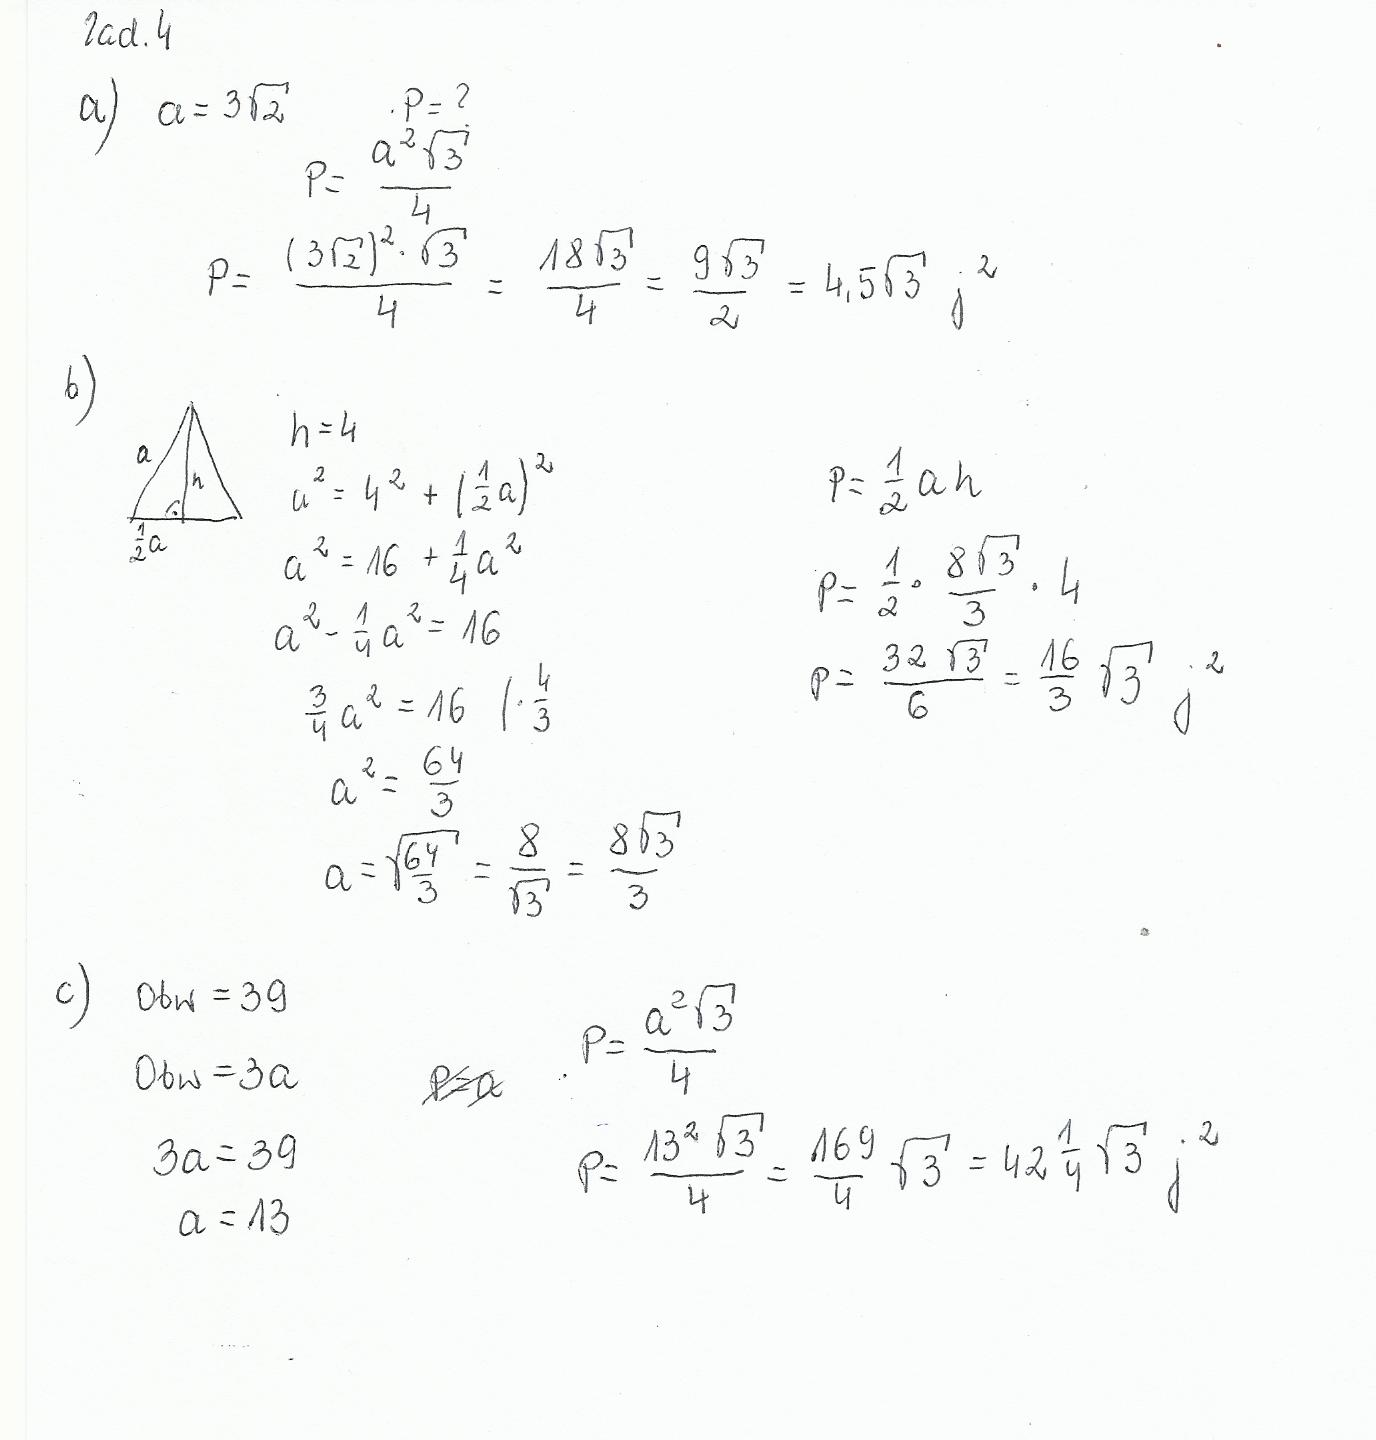 Zad. 4
a) a = 3√2 P = ?
P = a²√3 / 4
P = (3√2)² · √3 / 4 = 18√3 / 4 = 9√3 / 2 = 4,5√3 j²
b)
a
h
½a
h = 4
a² = 4² + (½a)²
a² = 16 + ¼a²
a² - ¼a² = 16
¾a² = 16 | · 4/3
a² = 64/3
a = √(64/3) = 8/√3 = 8√3 / 3
P = ½ a h
P = ½ · 8√3 / 3 · 4
P = 32√3 / 6 = 16/3 √3 j²
c) Obw = 39
Obw = 3a
3a = 39
a = 13
P = a
P = a²√3 / 4
P = 13²√3 / 4 = 169/4 √3 = 42¼√3 j²